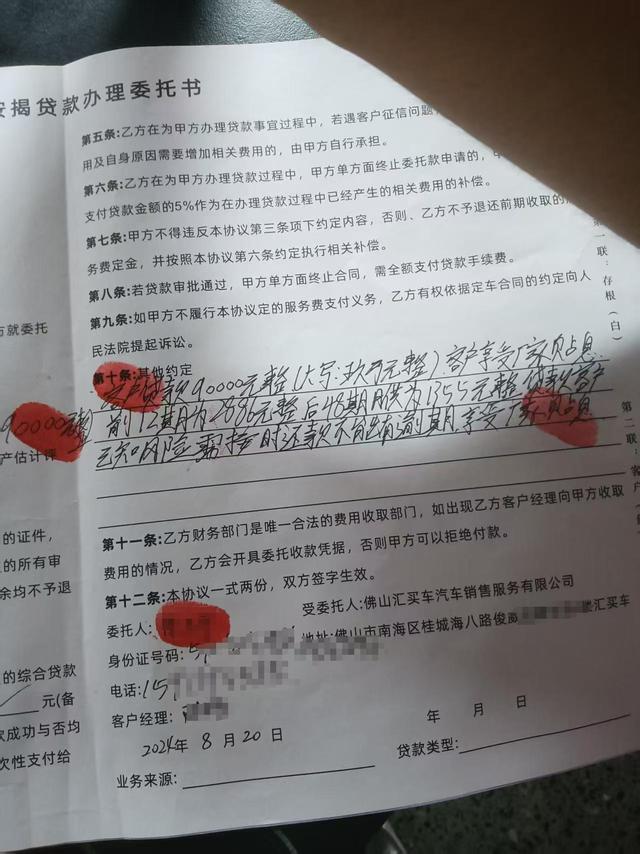 按揭贷款办理委托书
第五条:乙方在为甲方办理贷款事宜过程中，若遇客户征信问题
用及自身原因需要增加相关费用的，由甲方自行承担。
第六条:乙方在为甲方办理贷款过程中，甲方单方面终止委托款申请的，
支付贷款金额的5%作为在办理贷款过程中已经产生的相关费用的补偿。
第七条:甲方不得违反本协议第三条项下约定内容，否则、乙方不予退还前期收取的
务费定金，并按照本协议第六条约定执行相关补偿。
第八条:若贷款审批通过，甲方单方面终止合同，需全额支付贷款手续费。
第九条:如甲方不履行本协议定的服务费支付义务，乙方有权依据定车合同的约定向人
民法院提起诉讼。
第十条:其他约定
客户贷款90000元整(大写:玖万元整)客户享受厂家贴息
前12期为2896元整后48期月供为1355元整 贷款客户
已知风险 需按时还款不能逾期 享受厂家贴息
第十一条:乙方财务部门是唯一合法的费用收取部门，如出现乙方客户经理向甲方收取
费用的情况，乙方会开具委托收款凭据，否则甲方可以拒绝付款。
第十二条:本协议一式两份，双方签字生效。
委托人:
受委托人:佛山汇买车汽车销售服务有限公司
身份证号码:
地址:佛山市南海区桂城海八路俊
汇买车
电话:15
客户经理:
2024年 8 月 20 日
年 月 日
业务来源:
贷款类型:
方就委托
90000元整
产估计评
的证件，
的所有审
余均不予退
的综合贷款
元(备
款成功与否均
次性支付给
第一联:存根(白)
第二联:客户